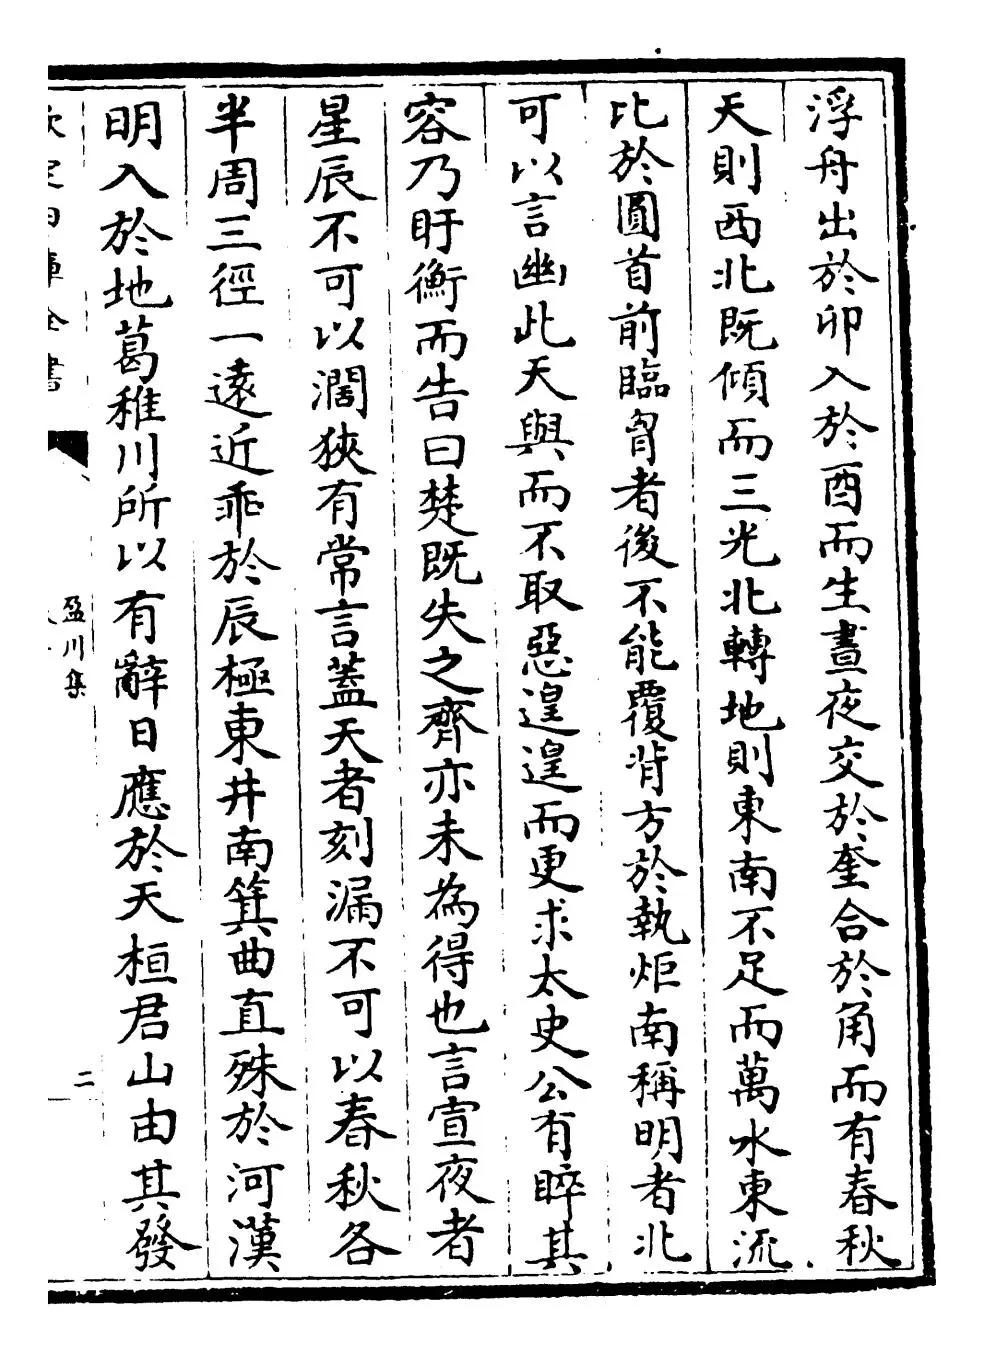 浮舟出於卯入於酉而生晝夜交於奎合於角而有春秋
天則西北既傾而三光北轉地則東南不足而萬水東流
比於圓首前臨胷者後不能覆背方於執炬南稱明者北
可以言幽此天與而不取惡遑遑而更求太史公有睟其
容乃盱衡而告曰楚既失之齊亦未為得也言宣夜者
星辰不可以濶狹有常言蓋天者刻漏不可以春秋各
半周三徑一遠近乖於辰極東井南箕曲直殊於河漢
明入於地葛稚川所以有辭日應於天桓君山由其發
欽定四庫全書
盈川集
二